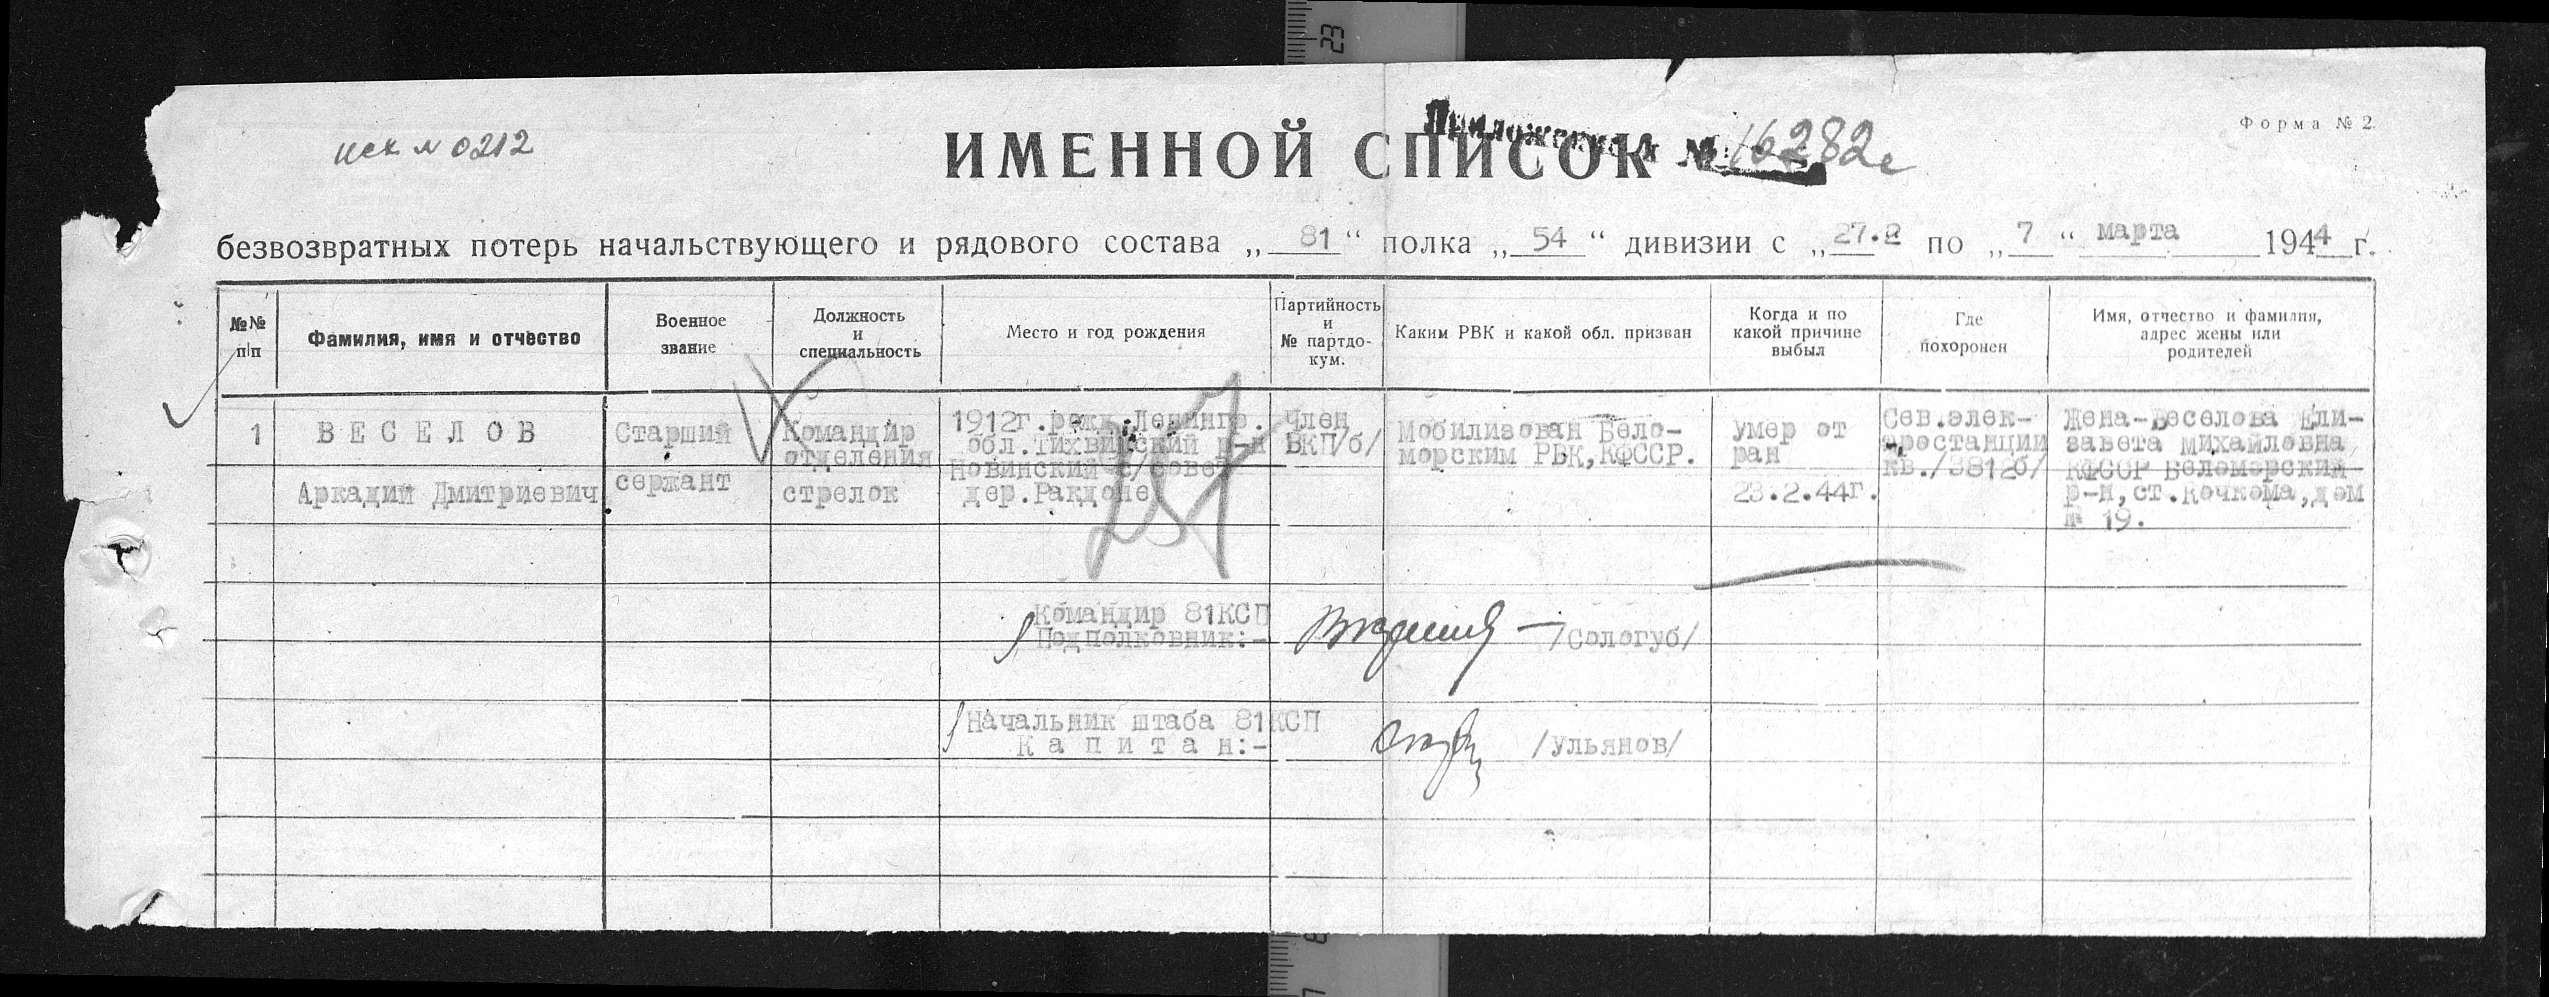 исх № 0212
ИМЕННОЙ СПИСОК
Приложение к № 16282с
Форма № 2.
безвозвратных потерь начальствующего и рядового состава „ 81 “ полка „ 54 “ дивизии с „ 27.2 по „ 7 “ марта 1944 г.
№№ п/п
Фамилия, имя и отчество
Военное звание
Должность и специальность
Место и год рождения
Партийность и № партдо-кум.
Каким РВК и какой обл. призван
Когда и по какой причине выбыл
Где похоронен
Имя, отчество и фамилия, адрес жены или родителей
1
ВЕСЕЛОВ
Аркадий Дмитриевич
Старший
сержант
Командир
отделения
стрелок
1912г.рожд.Ленингр.
обл.Тихвинский р-н
Новинский с/совет
дер.Ракдоне
Член
ВКП/б/
Мобилизован Бело-
морским РВК,КФССР.
умер от
ран
23.2.44г.
Сев.элек-
тростанции
кв./3812б/
Жена-Веселова Ели-
завета Михайловна
КФССР Беломорский
р-н,ст.Кочкома,дом
№ 19.
Командир 81КСП
Подполковник:- /Сологуб/
Начальник штаба 81КСП
Капитан:- /Ульянов/
23